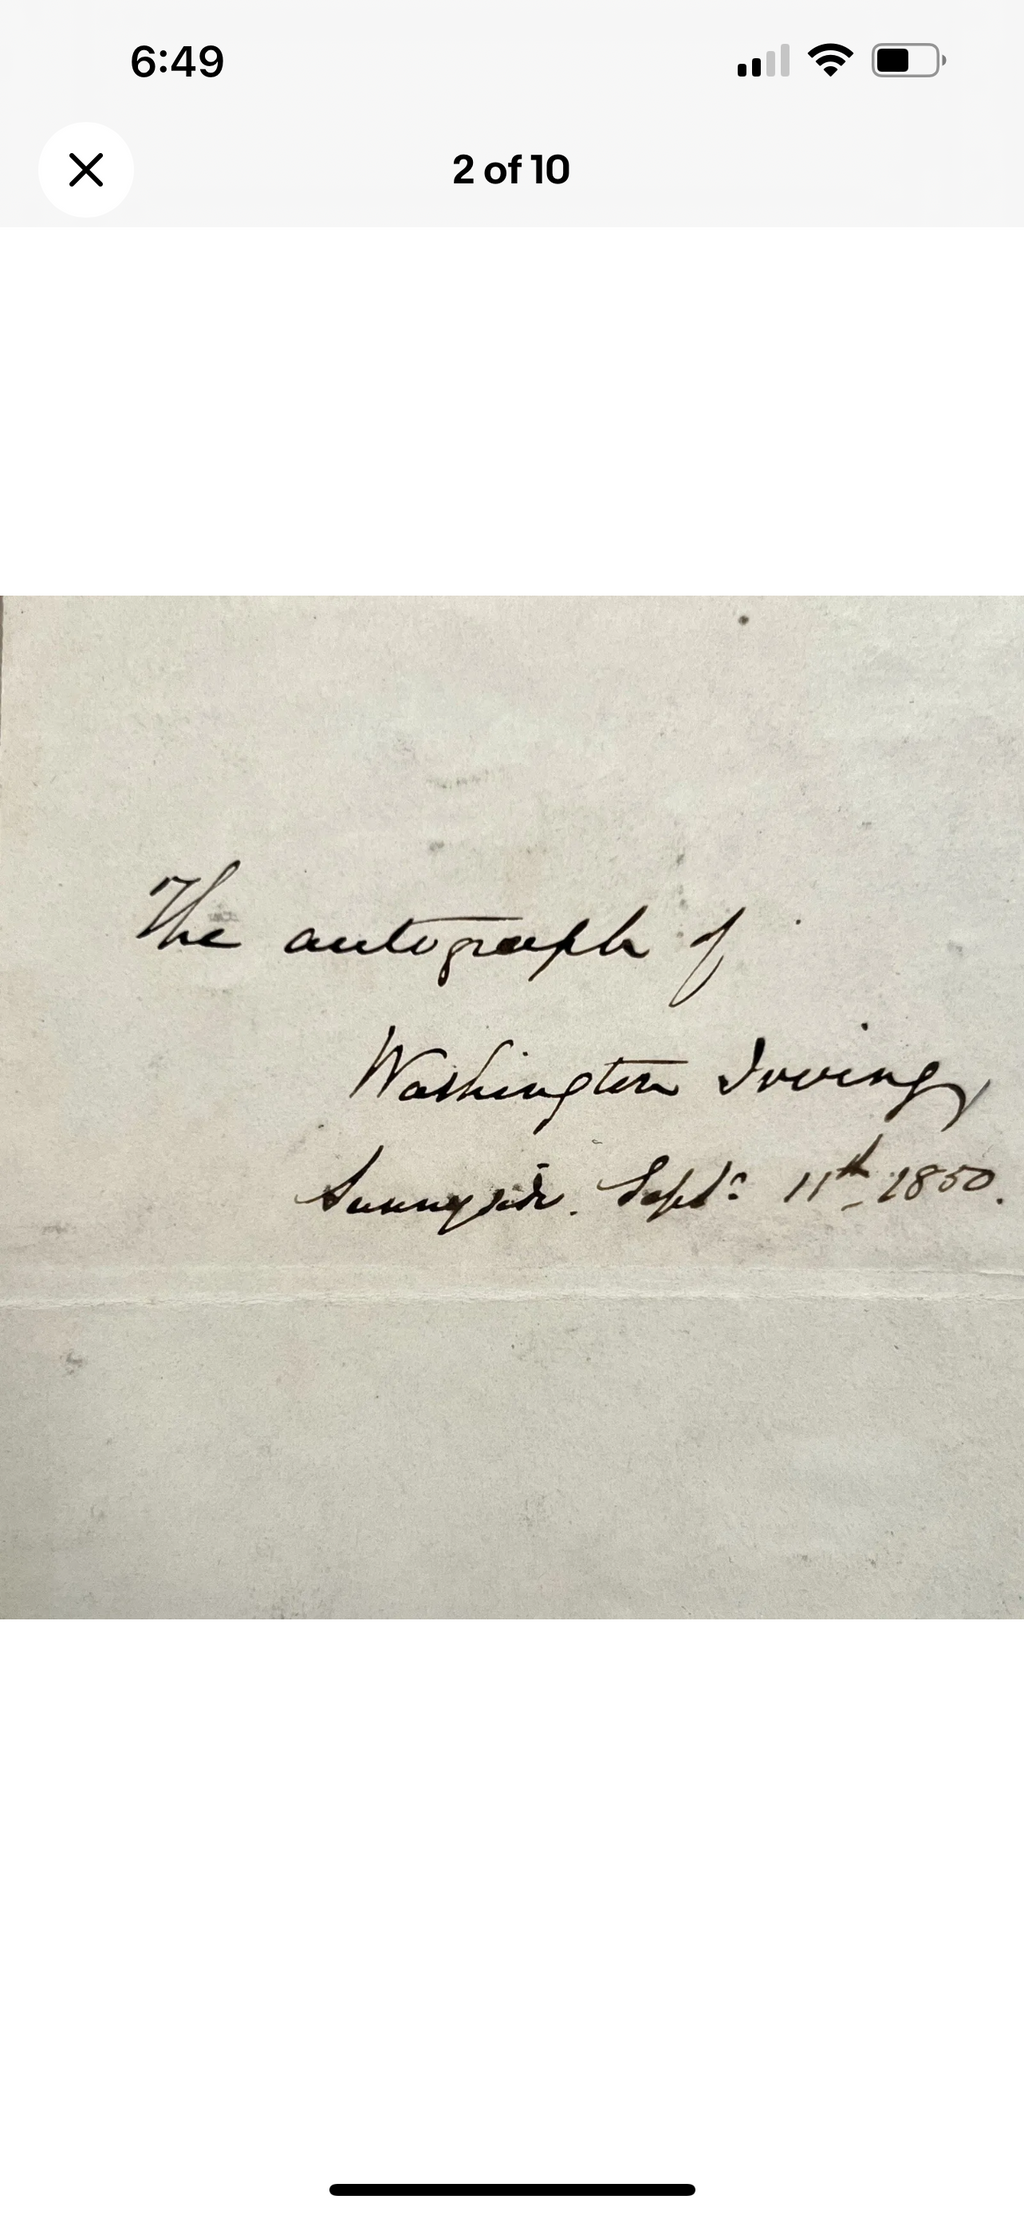 6:49
2 of 10
The autograph of
Washington Irving
Sunnyside. Sept: 11th 1850.